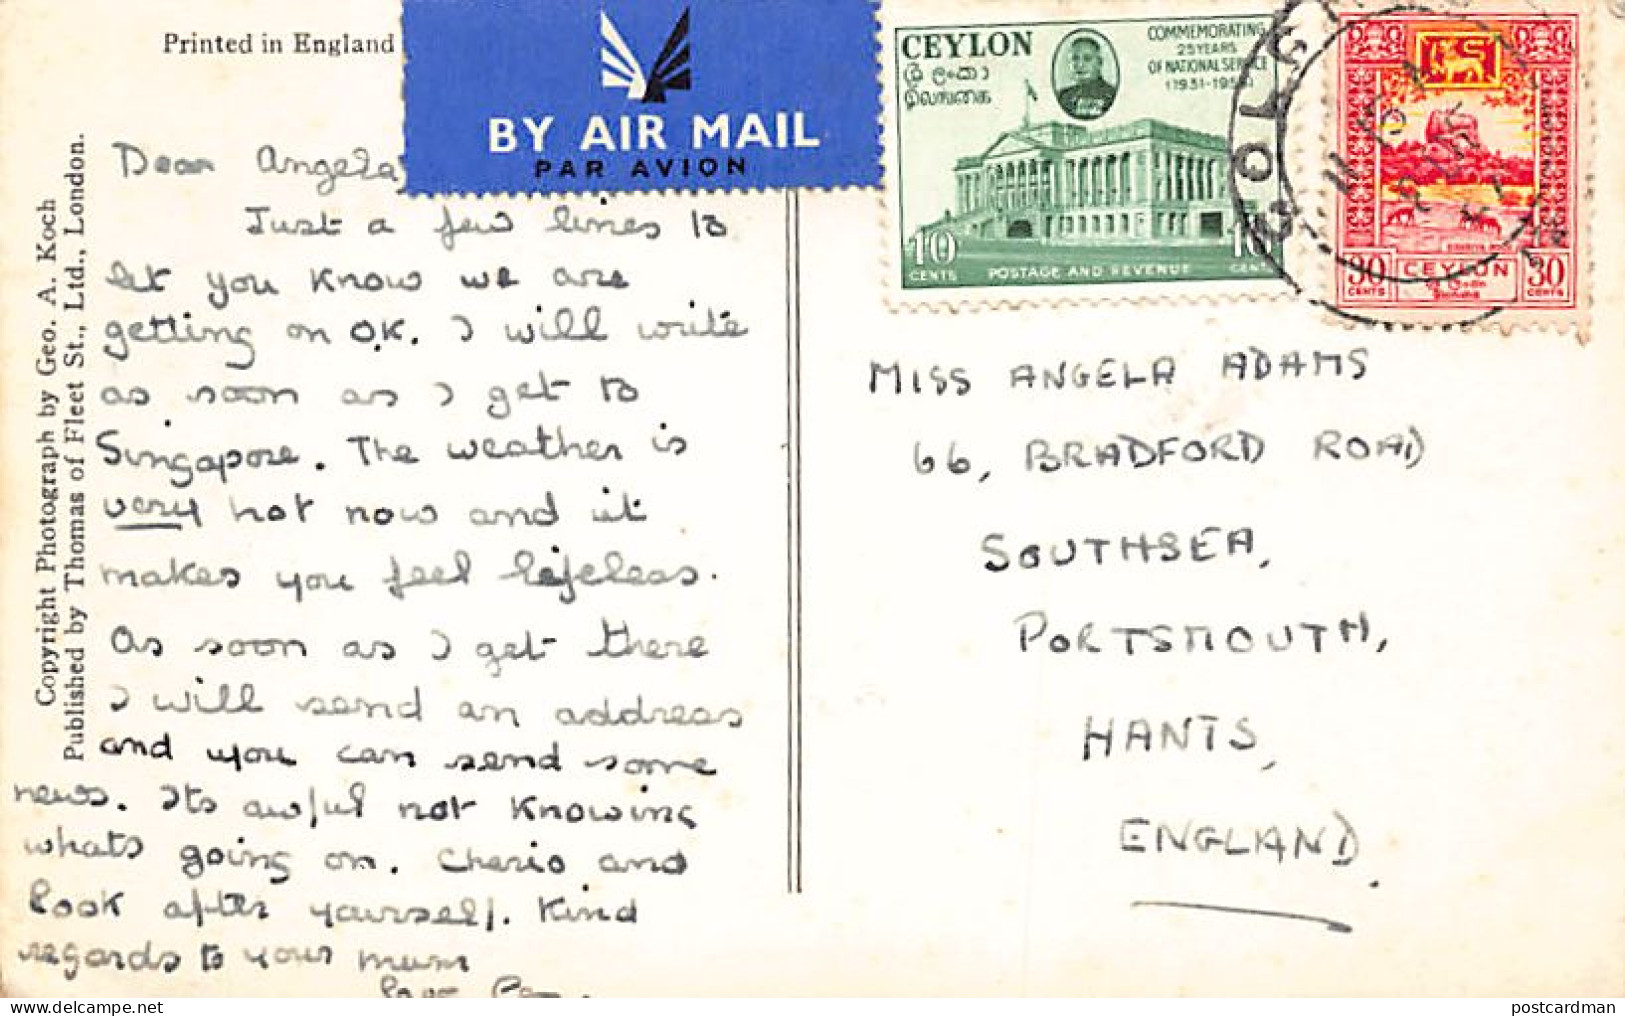 Printed in England
BY AIR MAIL
PAR AVION
CEYLON
COMMEMORATING
25 YEARS
OF NATIONAL SERVICE
ශ්‍රී ලංකා
இலங்கை
10
CENTS
POSTAGE AND REVENUE
10
CENTS
30
CENTS
CEYLON
30
CENTS
Copyright Photograph by Geo. A. Koch
Published by Thomas of Fleet St., Ltd., London.
Dear Angela
Just a few lines to
let you know we are
getting on O.K. I will write
as soon as I get to
Singapore. The weather is
very hot now and it
makes you feel lifeless.
As soon as I get there
I will send an address
and you can send some
news. Its awful not knowing
whats going on. Cherio and
look after yourself. Kind
regards to your mum
MISS ANGELA ADAMS
66, BRADFORD ROAD
SOUTHSEA,
PORTSMOUTH,
HANTS,
ENGLAND.
postcardman